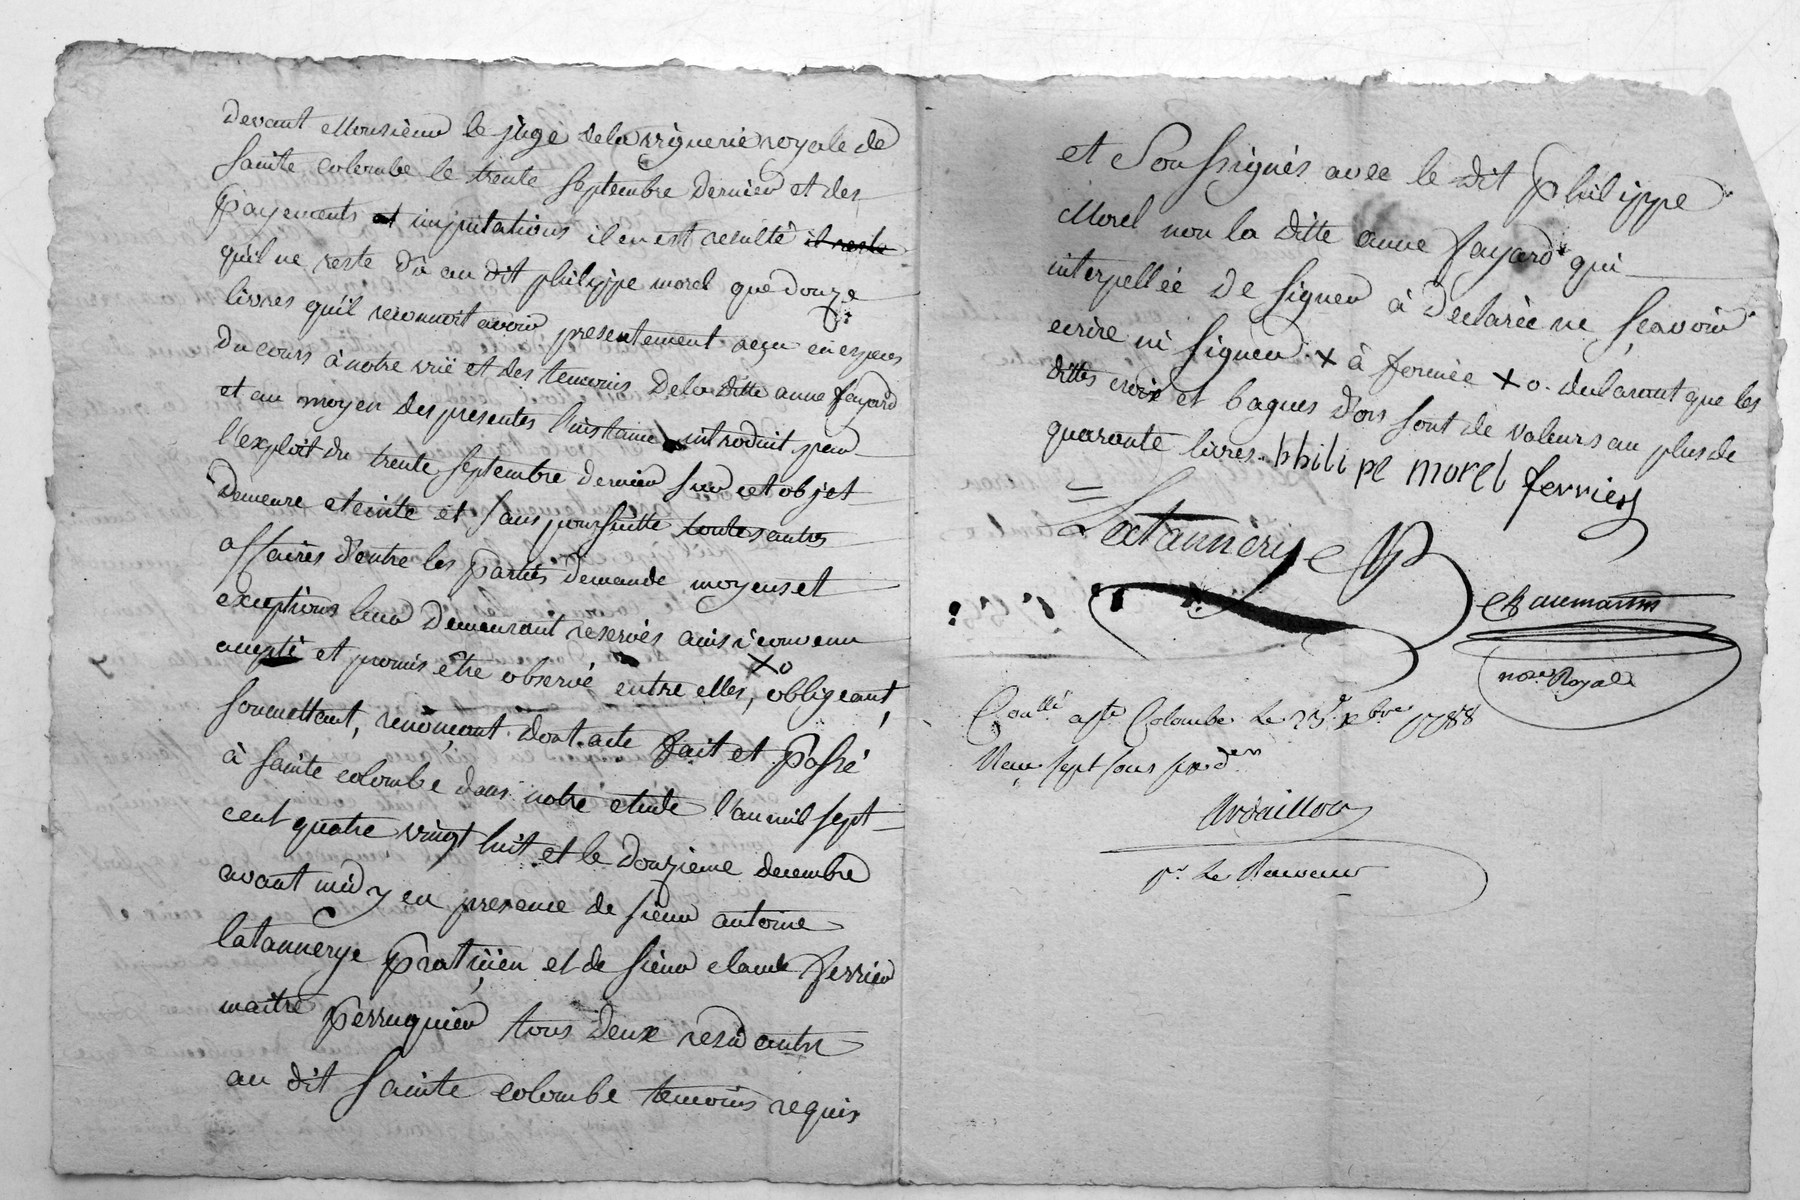 devant Monsieur le juge dela viguerie royale de
sainte colombe le trente septembre dernier et des
payements et imputations il en est resulté il reste
quil ne reste dû au dit philippe morel que douze
livres quil reconnoit avoir presentement reçu en especes
du cours à notre vuë et des temoins dela ditte anne fayard
et au moyen des presentes l'instance introduit par
l'exploit du trente septembre dernier sur cet objet
demeure eteinte et sans poursuitte toutes autres
affaires d'entre les parties demande moyens et
exceptions leur demeurant reservés ainsi convenu
accepté et promis être observé entre elles, xo obligeant,
soumettant, renonçant dont acte fait et passé
à sainte colombe dans notre etude l'an mil sept
cent quatre vingt huit et le douzieme decembre
avant midy en presence de sieur antoine
latannerye praticien et de sieur claude ferrier
maitre perruquier tous deux residants
au dit sainte colombe temoins requis
et soussignés avec le dit philippe
Morel non la ditte anne fayard qui
interpellée de signer à declarée ne sçavoir
ecrire ni signer. x à formée xo. declarant que les
dittes croix et bagues d'ors sont de valeurs au plus de
quarante livres. phili pe morel ferrier
Latannerye
Chaumartin
nore Royal
Conllé a ste Colombe le 23e. xbre 1788
Reçu sept sous six den
Ardaillon
pr. le Receveur